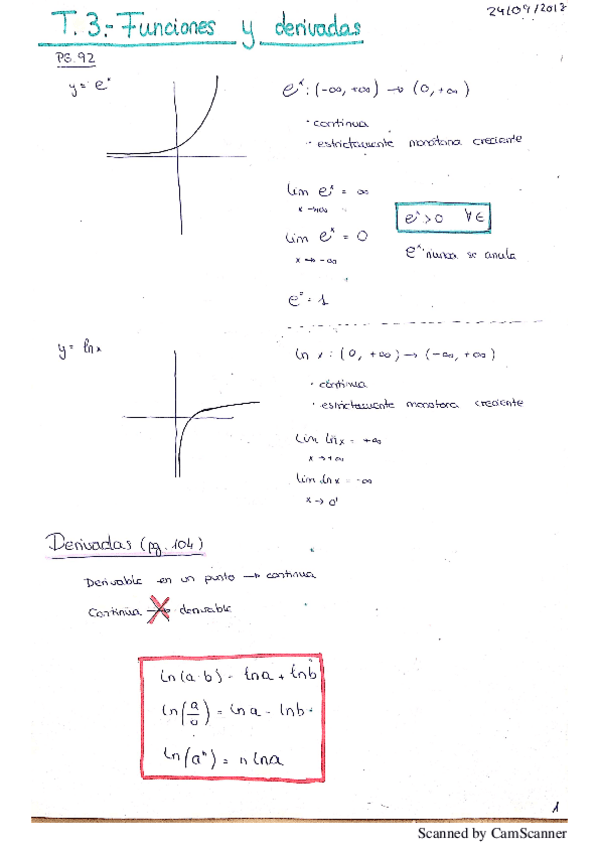 24/09/2018
T. 3.- Funciones y derivadas
PG. 92
y = e^x
e^x : (-∞, +∞) → (0, +∞)
· continua
· estrictamente monótona creciente
lim e^x = ∞
x → +∞
lim e^x = 0
x → -∞
e^x > 0 ∀ ∈
e^x nunca se anula
e^0 = 1
y = ln x
ln x : (0, +∞) → (-∞, +∞)
· continua
· estrictamente monotona creciente
lim ln x = +∞
x → +∞
lim ln x = -∞
x → 0^+
Derivadas (pg. 104)
Derivable en un punto → continua
Continua → derivable
ln (a · b) = ln a + ln b
ln (a/b) = ln a - ln b
ln (a^n) = n ln a
1
Scanned by CamScanner